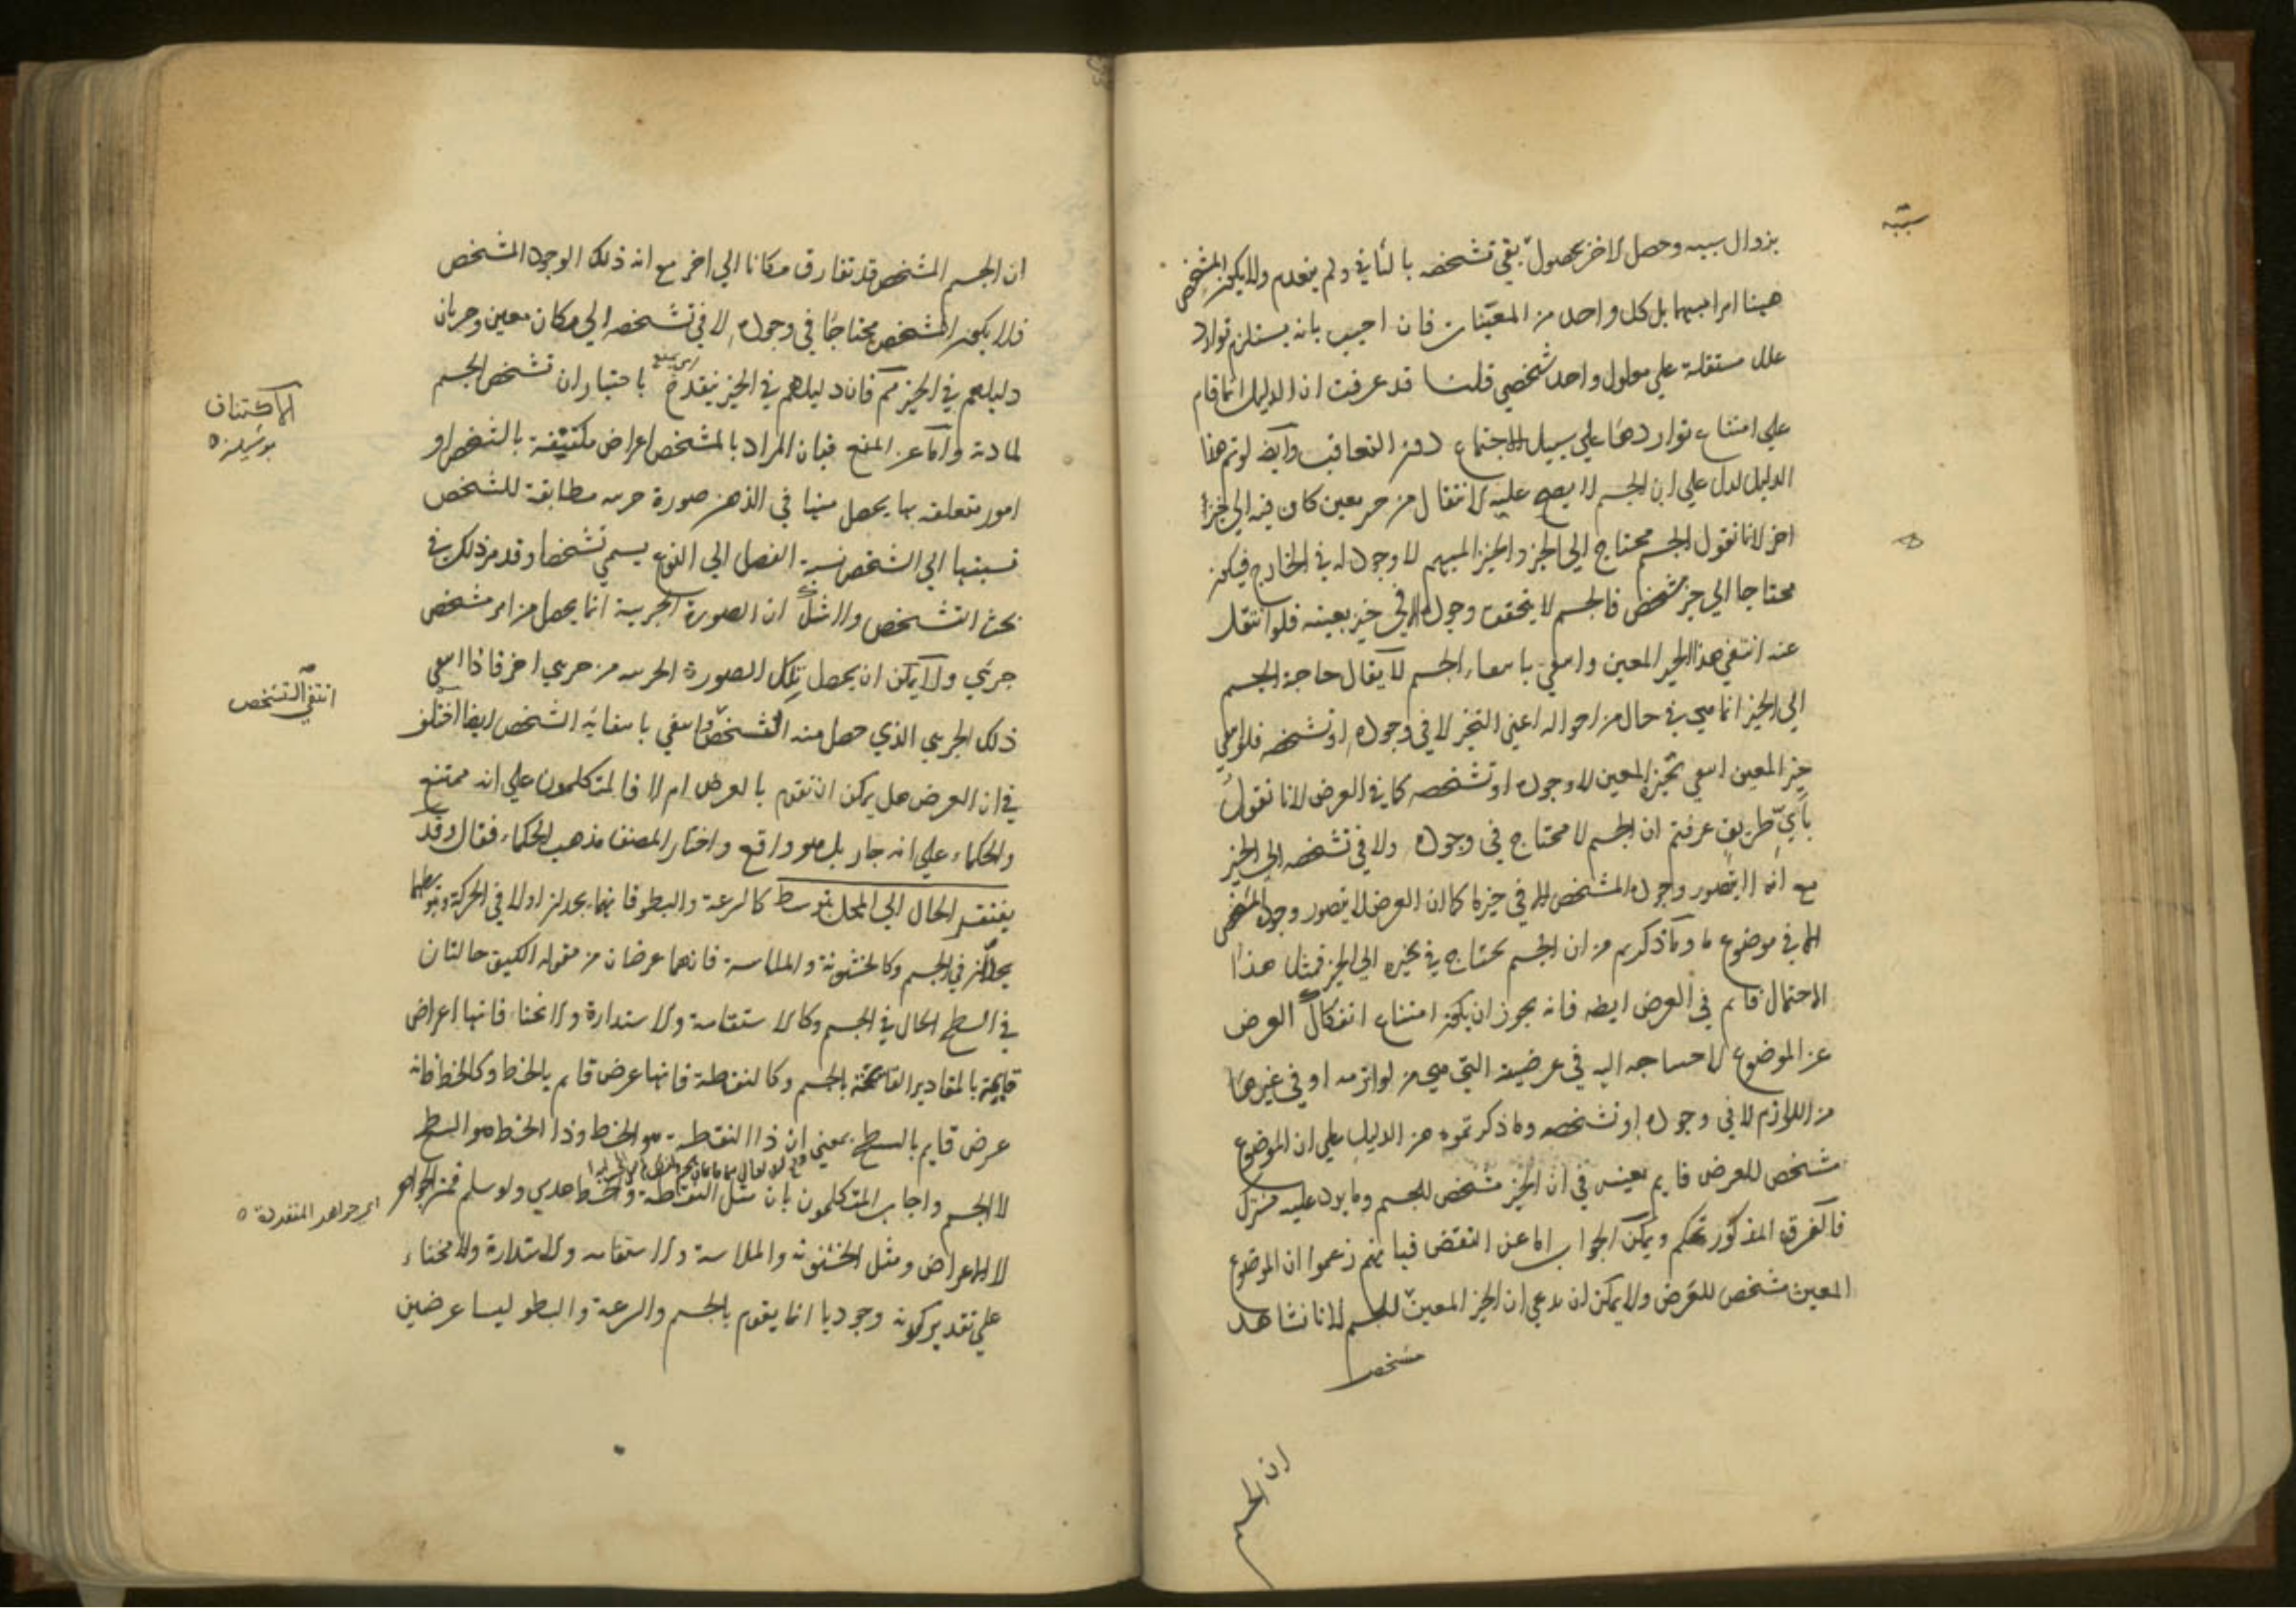 بزوال سببه وحصل الاخر بحصوله بقي تشخصه بالثاني ولم ينعدم ولا يكون المشخص
هينا امرا مبهما بل كل واحد من المعينات فان اجيب بانه يستلزم توارد
علل مستقلة علي معلول واحد شخصي قلنا قد عرفت ان الدليل انما قام
علي امتناع تواردها علي سبيل الاجتماع دون التعاقب وايضا لو تم هذا
الدليل لدل علي ان الجسم لا يصح عليه الانتقال من حيز معين كان فيه الي حيز
اخر لانا نقول الجسم محتاج الي الحيز والحيز المبهم لا وجود له في الخارج فيكون
محتاجا الي حيز مشخص فالجسم لا يتحقق وجوده الا في حيز بعينه فلو انتقل
عنه انتفي هذا الحيز المعين وانتفي بانتفاء الجسم لا يقال حاجة الجسم
الي الحيز انما هي في حال من احواله اعني التحيز لا في وجوده او تشخصه فلو انتفي
حيز المعين انتفي تحيزه المعين لا وجوده او تشخصه كما في العرض لانا نقول
باي طريق عرفتم ان الجسم لا محتاج في وجوده ولا في تشخصه الي الحيز
مع انه لا يتصور وجوده المشخص الا في حيز ما كما ان العرض لا يتصور وجوده المشخص
الا في موضوع ما وما ذكرتم من ان الجسم يحتاج في تحيزه الي الحيز فمثل هذا
الاحتمال قايم في العرض ايضا فانه يجوز ان يكون امتناع انفكاك العرض
عن الموضوع لاحتياجه اليه في عرضيته التي هي من لوازمه او في غيرها
من اللوازم لا في وجوده او تشخصه وما ذكرتموه من الدليل علي ان الموضوع
مشخص للعرض قايم بعينه في ان الحيز مشخص للجسم وما يرد عليه مشترك
فالفرق المذكور تحكم ويمكن الجواب اما عن النقض فبانهم زعموا ان الموضوع
المعين مشخص للعرض ولا يمكن ان ندعي ان الحيز المعين للجسم لانا نشاهد
مشخص
ان الجسم
ان الجسم المشخص قد تفارق مكانا الي اخر مع انه ذلك الوجود المشخص
فلا يكون المشخص محتاجا في وجوده لا في تشخصه الي مكان معين وجريان
دليلهم في الحيز مم فان دليلهم في الحيز ينقدح باختيار ان تشخص الجسم
لمادته واما عن المنع فبان المراد بالمشخص اعراض مكتنفة بالشخص او
الاكتناف
امور متعلقه بها يحصل منها في الذهن صورة جزيية مطابقة للشخص
نسبتها الي الشخص نسبة الفصل الي النوع يسمي تشخصا وقد مر ذلك في
بحث التشخص ولا شك ان الصورة الجزيية انما يحصل من امر مشخص
جزئي ولا يمكن ان يحصل تلك الصورة الجزيية من جزيي اخر فاذا انتفي
انتفي التشخص
ذلك الجزيي الذي حصل منه التشخص وانتفي بانتفائه الشخص ايضا اختلف
في ان العرض هل يمكن ان تقوم بالعرض ام لا فالمتكلمون علي انه ممتنع
والحكماء علي انه جايز بل هو واقع واختار المصنف مذهب الحكماء فقال وقد
يفتقر الحال الي المحل بتوسط كالسرعة والبطو فانهما يحلان اولا في الحركة وبتوسطها
يحلان في الجسم وكالخشونة والملاسة فانهما عرضان من مقوله الكيف حالتان
في السطح الحال في الجسم وكالاستقامة والاستدارة والانحناء فانها اعراض
قايمة بالمقادير القايمة بالجسم وكالنقطة فانها عرض قايم بالخط وكالخط فانه
عرض قايم بالسطح بمعني ان ذا النقطة هو الخط وذا الخط هو السطح
لا الجسم واجاب المتكلمون بان مثل النقطة والخط عدمي ولو سلم فمن الجواهر
اي جواهر المنفردة
لا الاعراض ومثل الخشونة والملاسة والاستقامه والاستدارة والانحناء
علي تقدير كونه وجوديا انما يقوم بالجسم والسرعة والبطو ليسا عرضين